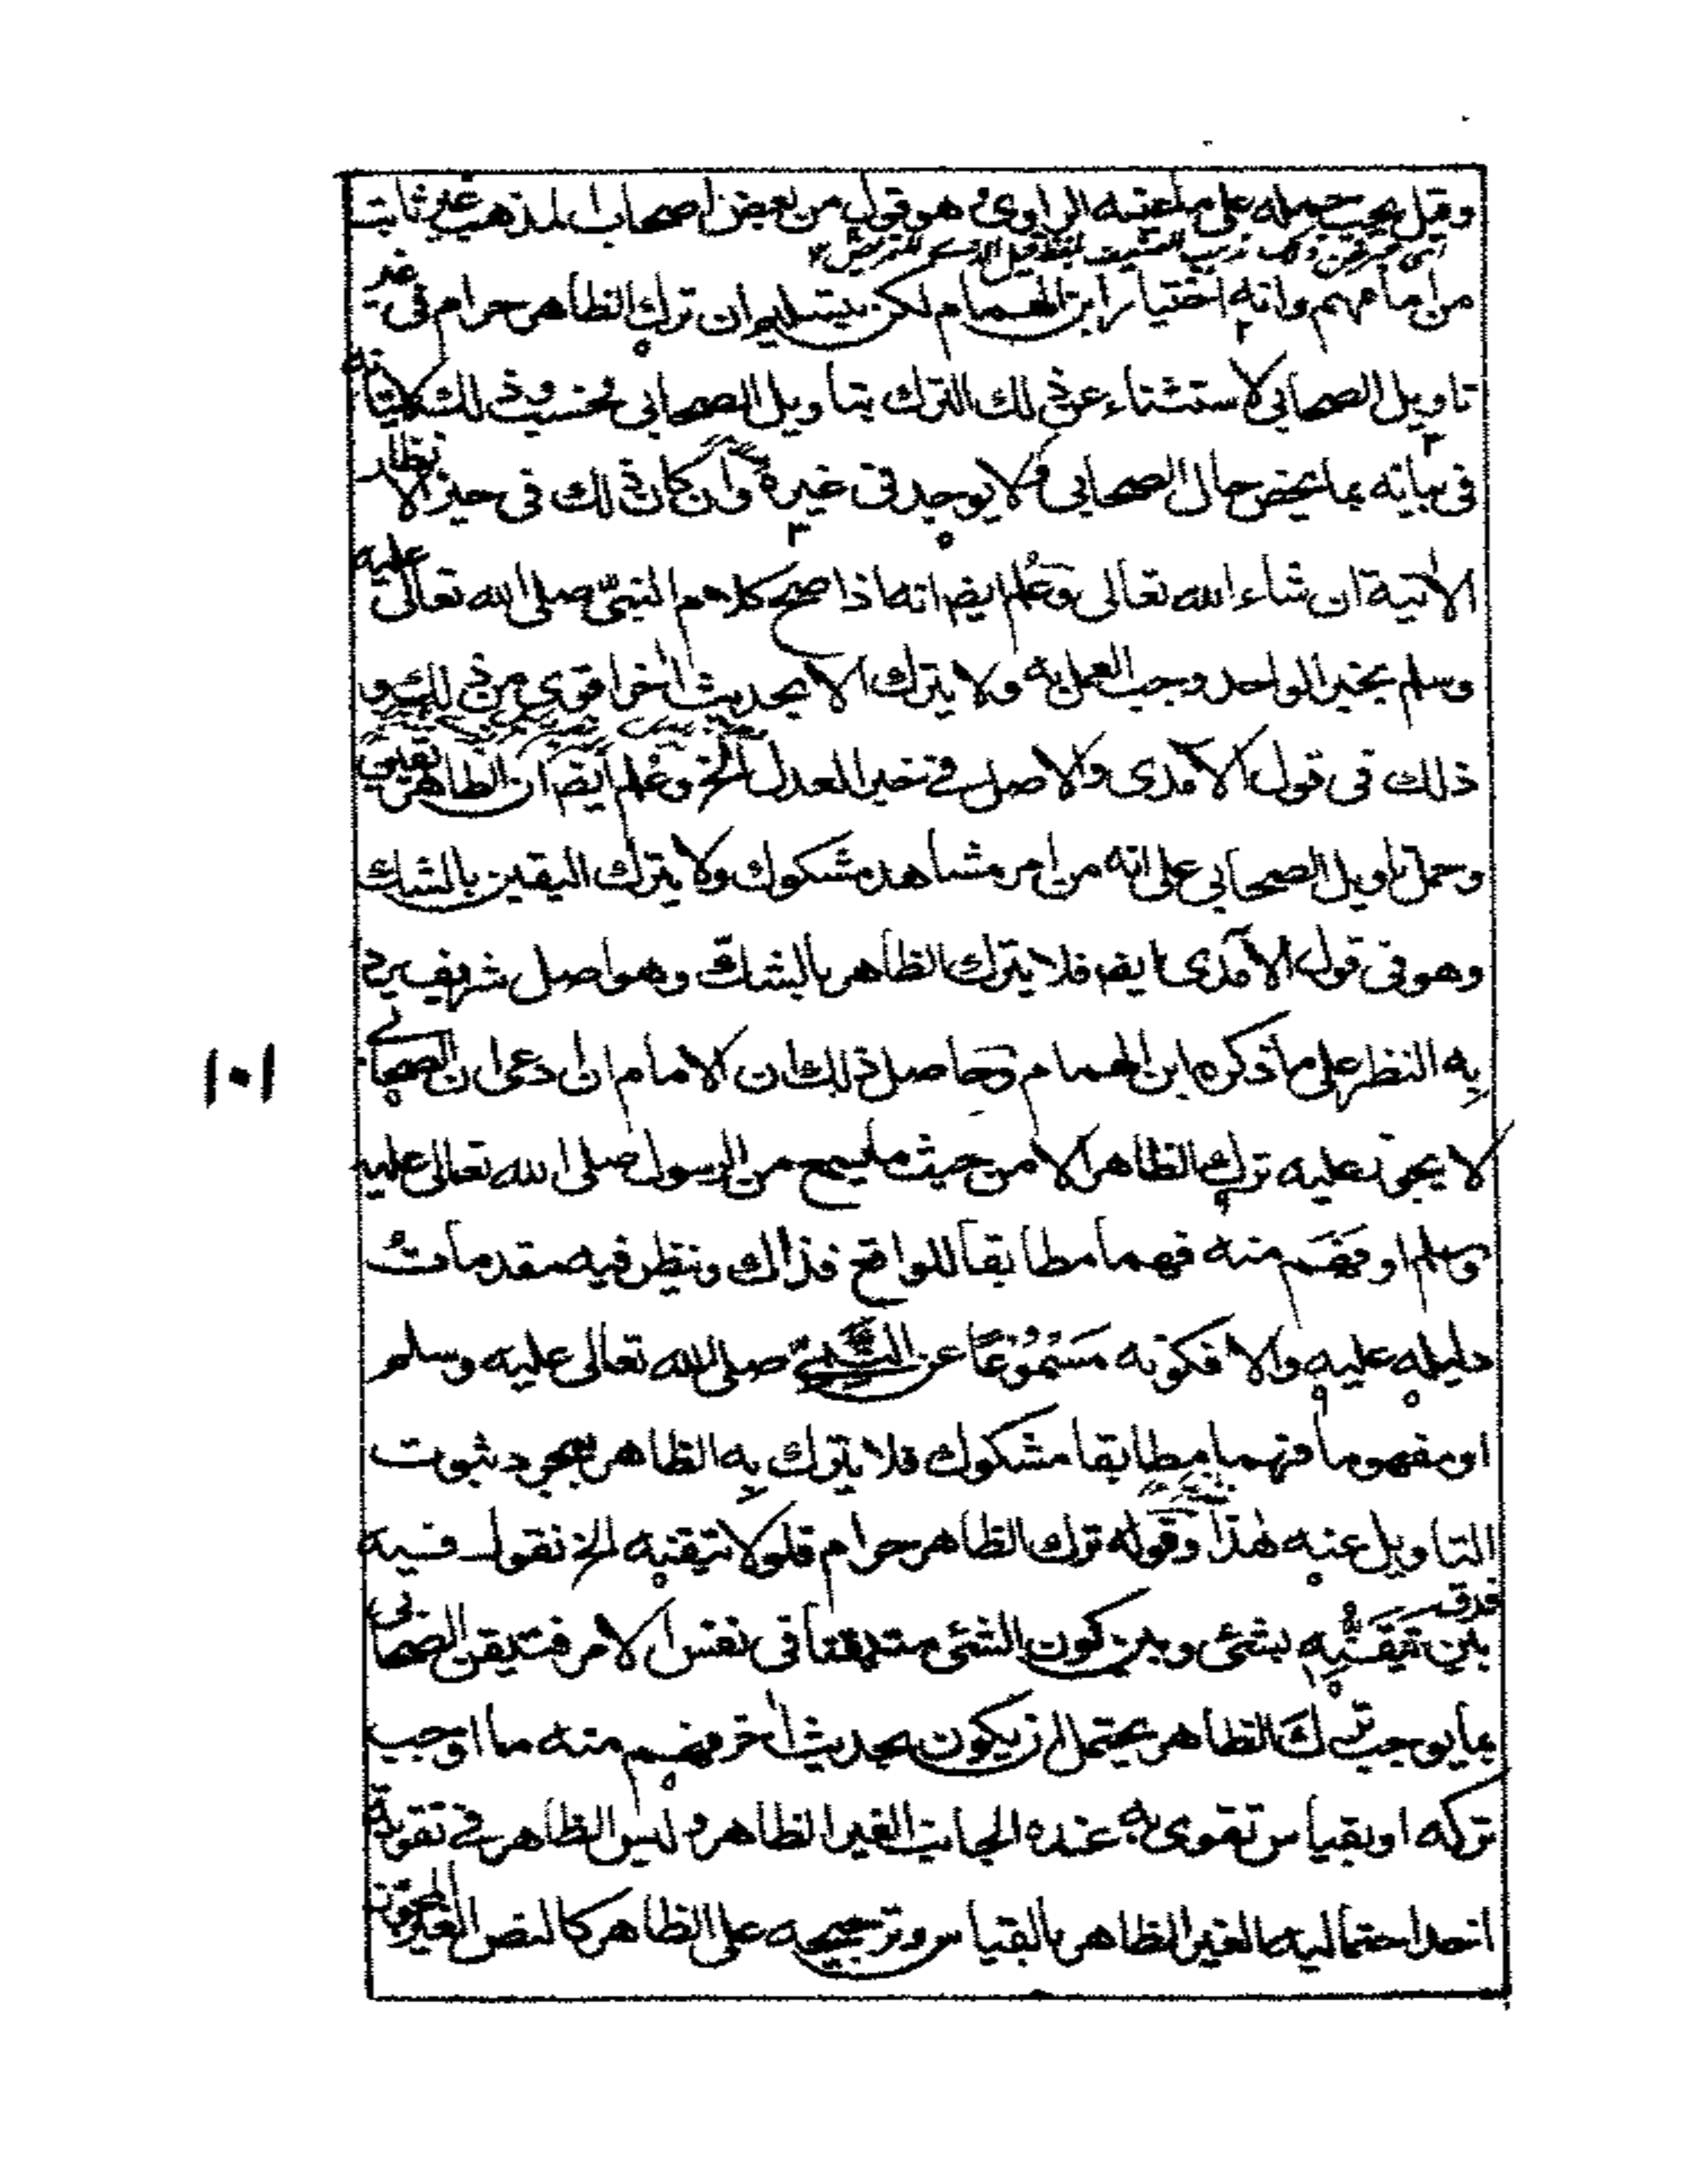 وقيل يجب حمله على ما عينه الراوى هو قول من بعض اصحاب المذهب غير ثابت
من امامهم وانه اختيار ابن الهمام لكن يتسلم ان ترك الظاهر حرام فى غير
تاويل الصحابى لاستثناء عن ذلك الترك بتاويل الصحابى فحسب وذلك لاتيانه
فى بيانه بما يخص حال الصحابى ولا يوجد فى غيره وان كان ذلك فى حيز الانظار
الآتية ان شاء الله تعالى وعُلم ايضا انه اذا صح كلام النبىّ صلى الله تعالى عليه
وسلم بخبر الواحد وجب العمل به ولا يترك الا بحديث آخر اقوى من ذلك و
ذلك فى قول الآمدى والاصل فى خبر العدل الخ وعُلم ايضا ان الظاهر يقين
وحمل تاويل الصحابى على انه من امر مشاهد مشكوك ولا يترك اليقين بالشك
وهو فى قول الآمدى ايضا فلا يترك الظاهر بالشك وهو اصل شريف يرد
به النظر على ما ذكره ابن الهمام وحاصل ذلك ان الامام ان ادعى ان الصحابى
لا يجوز عليه ترك الظاهر الا من حيث ما يسمع من الرسول صلى الله تعالى عليه
وسلم او فهم منه فهما مطابقا للواقع فذاك وننظر فيه مقدمات
دليله عليه والا فكونه مَسْمُوْعًا عن النبىّ صلى الله تعالى عليه وسلم
او مفهوما فهما مطابقا مشكوك فلا يترك به الظاهر بمجرد ثبوت
التاويل عنه هٰذا وقوله ترك الظاهر حرام فلولا تيقنه الخ نقول فيه
فرق
بين تيقّنه بشئ وبين كون الشئ متيقنا فى نفس الامر فتيقن الصحابى
بما يوجب ترك الظاهر يحتمل ان يكون بحديث آخر فهم منه ما اوجب
تركه او بقياس تقوى به عنده الجانب الغير الظاهر وليس الظاهر فى تقوية
احد احتماليه الغير الظاهر بالقياس وترجيحه على الظاهر كالنص الغير
١٠١